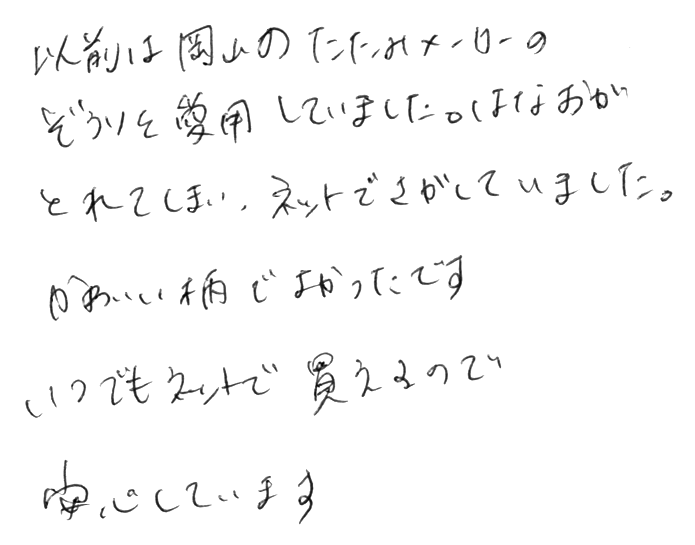 以前は岡山のたたみメーカーの
ぞうりを愛用していました。はなおが
とれてしまい、ネットでさがしていました。
かわいい柄でよかったです
いつでもネットで買えるので
安心しています